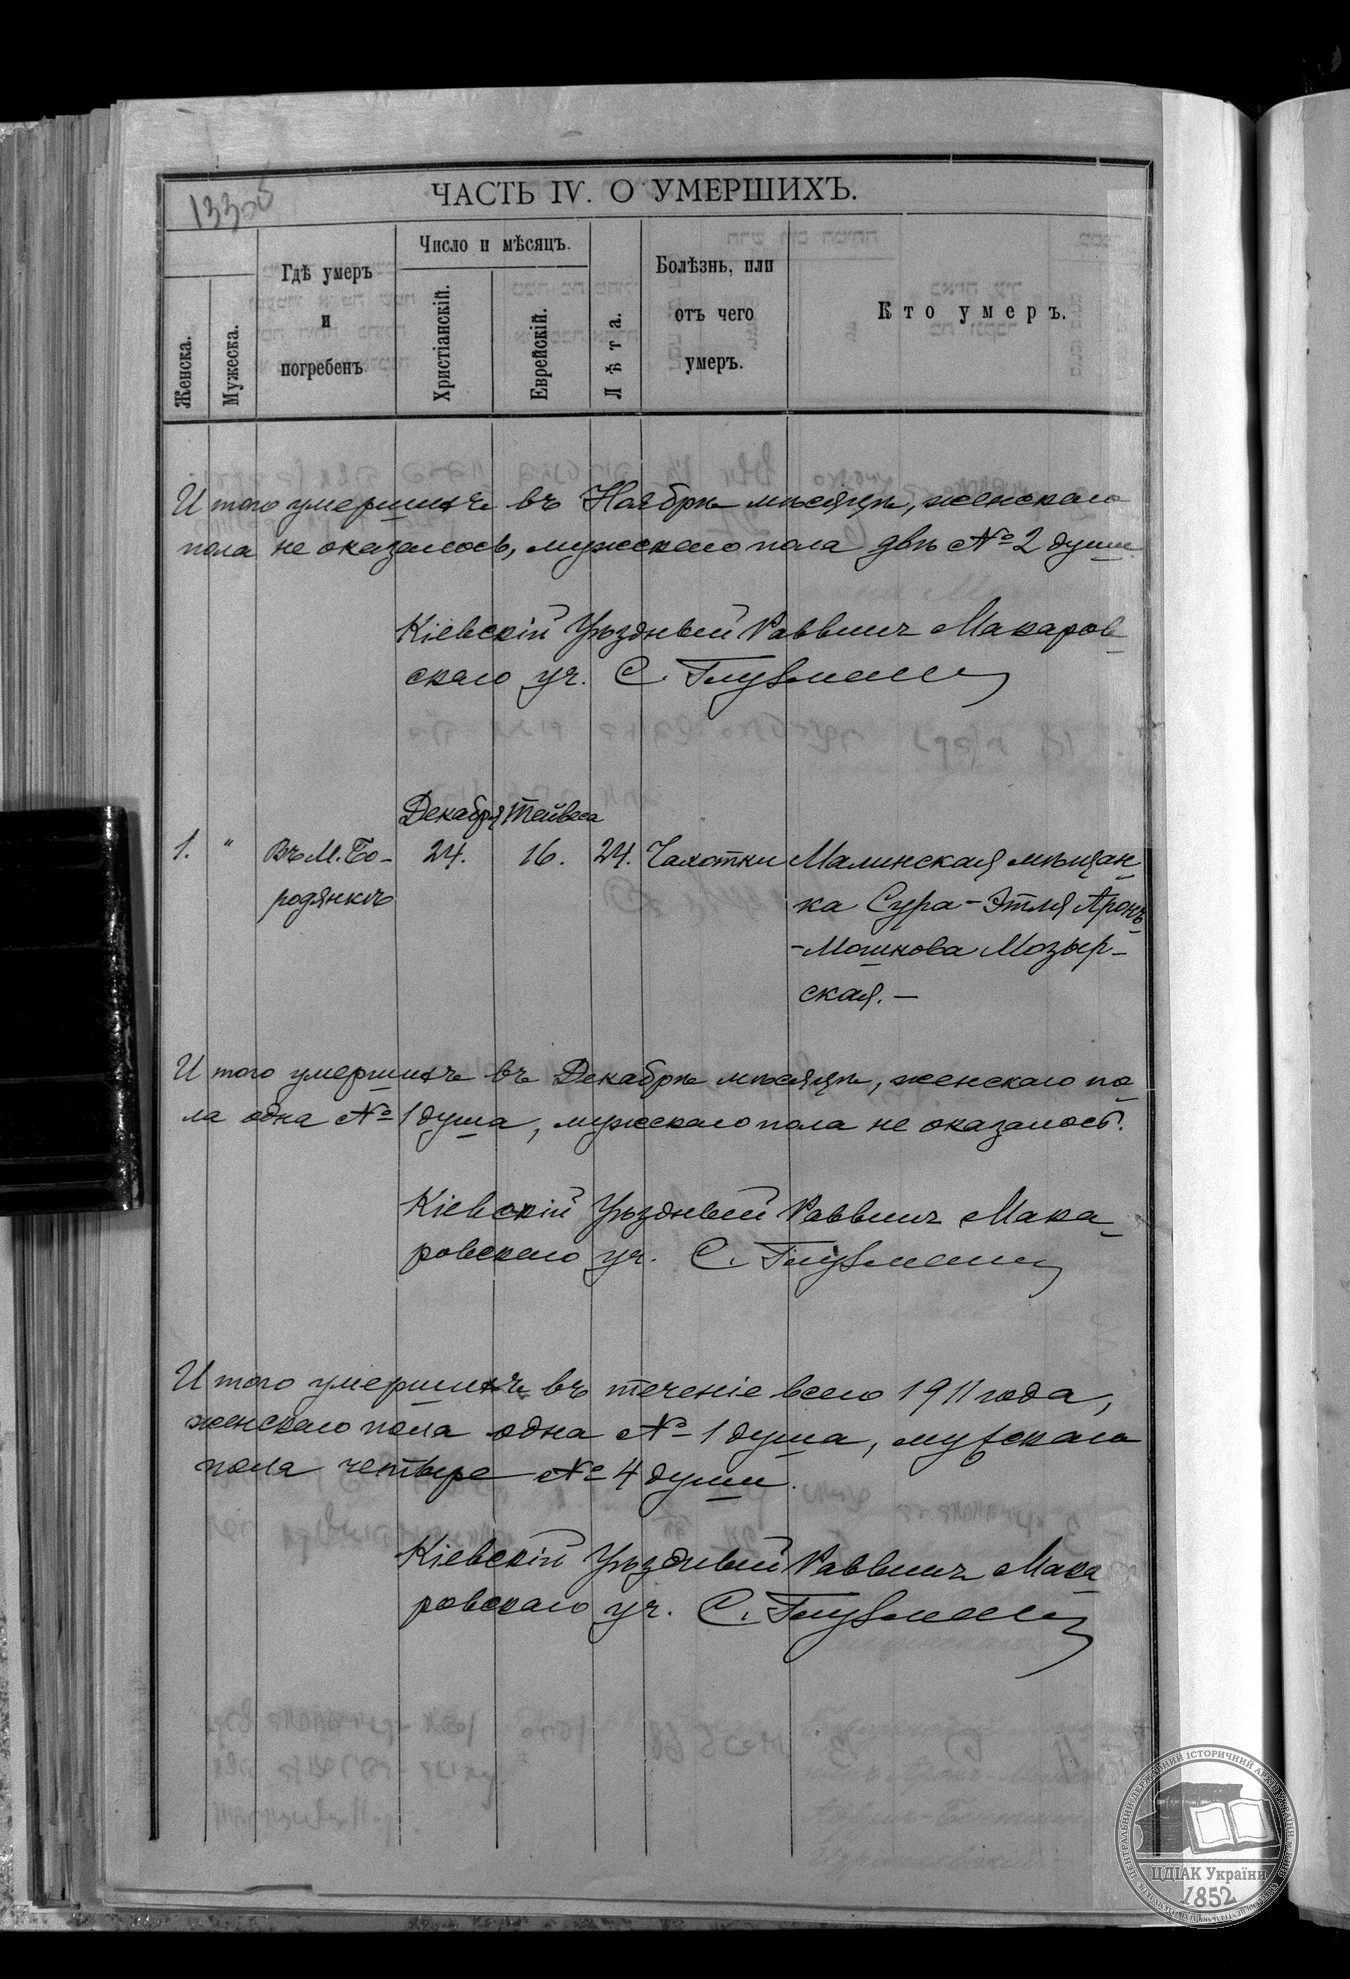 133об
ЧАСТЬ IV. О УМЕРШИХЪ.
Женска.
Мужеска.
Гдѣ умеръ и погребенъ
Число и мѣсяцъ.
Христіанскій.
Еврейскій.
Лѣта.
Болѣзнь, или отъ чего умеръ.
Кто умеръ.
Итого умершихъ въ Ноябрѣ мѣсяцѣ, женскаго
пола не оказалось, мужескаго пола двѣ № 2 души.
Кіевскій Уѣздный Раввинъ Макаров-
скаго уч. С. Глузманъ
Декабря Тейвеса
1. " Въ М. Бо- 24. 16. 24. Чахотки Малинская мѣщан-
родянкѣ ка Сура-Этля Аронъ
-Мошкова Мозыр-
ская.-
Итого умершихъ въ Декабрѣ мѣсяцѣ, женскаго по-
ла одна № 1 душа, мужескаго пола не оказалось.
Кіевскій Уѣздный Раввинъ Мака-
ровскаго уч. С. Глузманъ
Итого умершихъ въ теченіе всего 1911 года,
женскаго пола одна № 1 душа, мужскаго
пола четыре № 4 души.
Кіевскій Уѣздный Раввинъ Мака-
ровскаго уч. С. Глузманъ
ЦЕНТРАЛЬНИЙ ДЕРЖАВНИЙ ІСТОРИЧНИЙ АРХІВ УКРАЇНИ
ЦДІАК України
1852